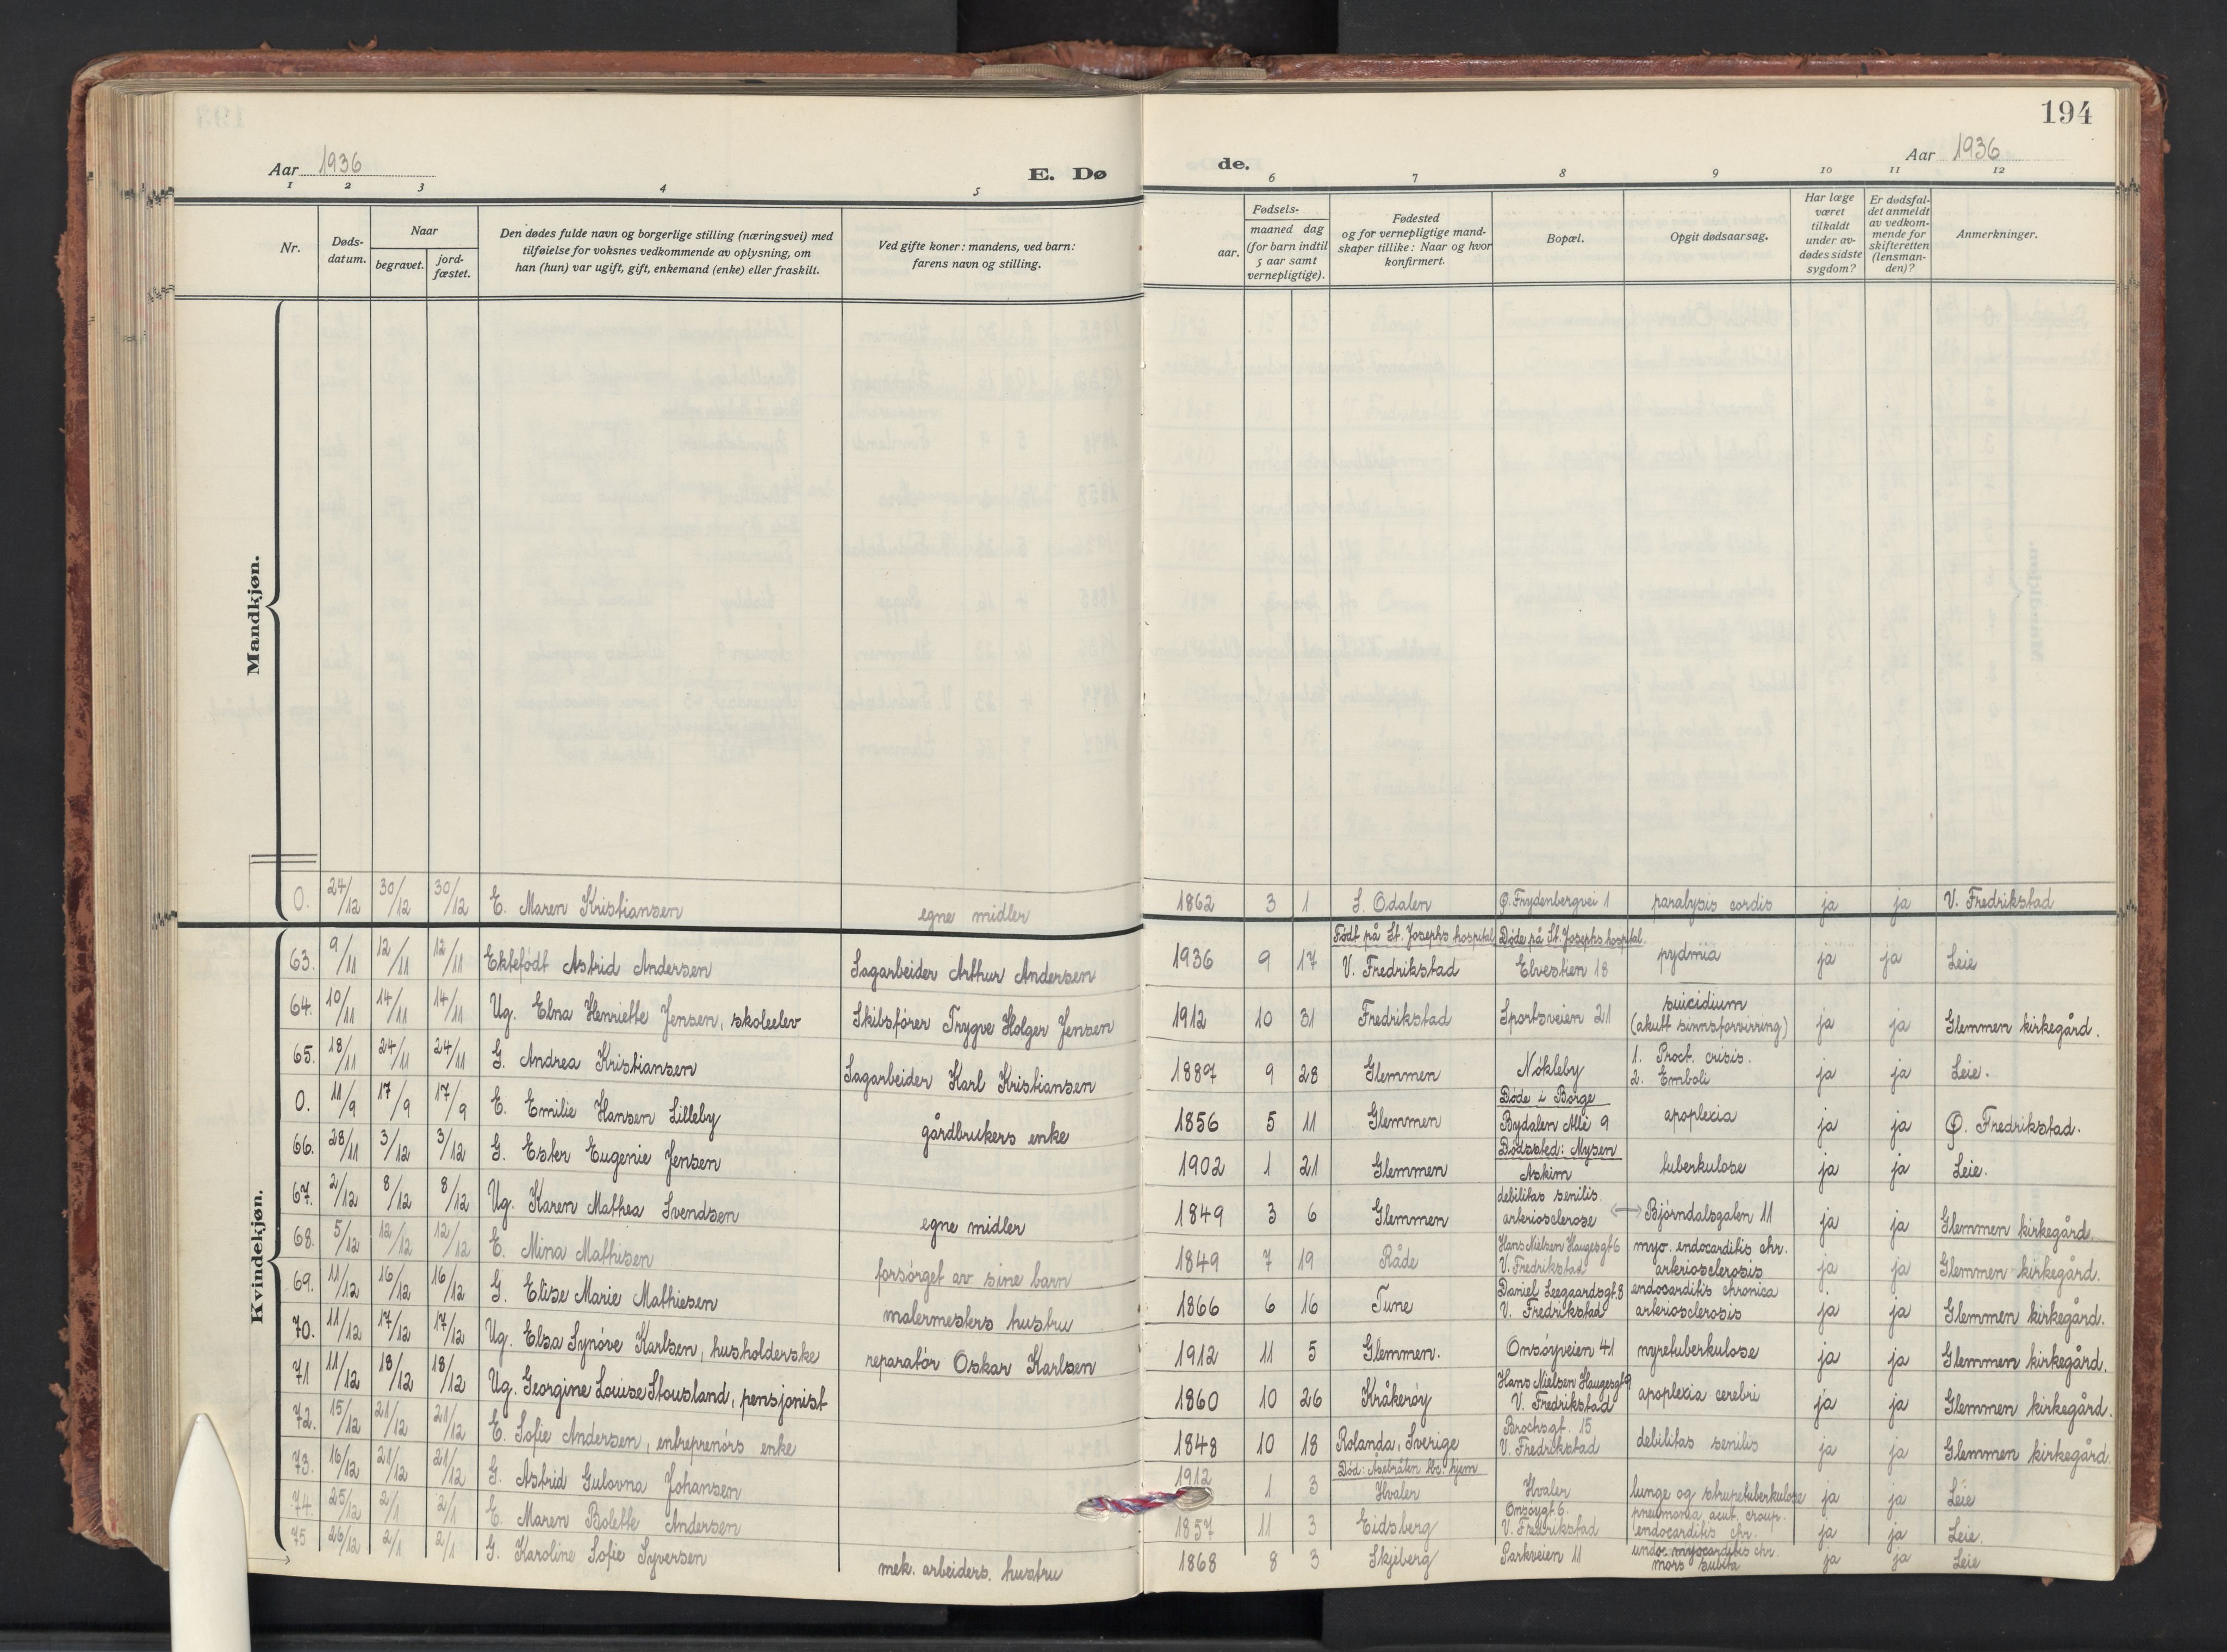 194
Aar 1936
E. Dø
de.
Aar 1936
1 2 3 4 5 6 7 8 9 10 11 12
Nr.
Døds-
datum.
Naar
begravet.
jord-
fæstet.
Den dødes fulde navn og borgerlige stilling (næringsvei) med
tilføielse for voksnes vedkommende av oplysning, om
han (hun) var ugift, gift, enkemand (enke) eller fraskilt.
Ved gifte koner: mandens, ved barn:
farens navn og stilling.
Fødsels-
aar.
maaned dag
(for barn indtil
5 aar samt
vernepligtige).
Fødested
og for vernepligtige mand-
skaper tillike: Naar og hvor
konfirmert.
Bopæl.
Opgit dødsaarsag.
Har læge
været
tilkaldt
under av-
dødes sidste
sygdom?
Er dødsfal-
det anmeldt
av vedkom-
mende for
skifteretten
(lensman-
den)?
Anmerkninger.
Mandkjøn.
0. 24/12 30/12 30/12 E. Maren Kristiansen egne midler 1862 3 1 S. Odalen Ø. Frydenbergvei 1 paralysis cordis ja ja V. Fredrikstad
Kvindekjøn.
Født på St. Josephs hospital Døde på St. Josephs hospital.
63. 9/11 12/11 12/11 Ektefødt Astrid Andersen Sagarbeider Arthur Andersen 1936 9 17 V. Fredrikstad Elvestien 18 pydmia ja ja Leie
suicidium
64. 10/11 14/11 14/11 Ug. Elna Henriette Jensen, skoleelev Skibsfører Trygve Holger Jensen 1912 10 31 Fredrikstad Sportsveien 21 (akutt sinnsforvirring) ja ja Glemmen kirkegård.
65. 18/11 24/11 24/11 G. Andrea Kristiansen Sagarbeider Karl Kristiansen 1887 9 28 Glemmen Nøkleby 1. Proct. crisis. ja ja Leie.
2. Emboli
Døde i Borge
0. 11/9 17/9 17/9 E. Emilie Hansen Lilleby gårdbrukers enke 1856 5 11 Glemmen Bydalen Allé 9 apoplexia ja ja Ø. Fredrikstad.
Dødssted: Mysen
66. 28/11 3/12 3/12 G. Ester Eugenie Jensen 1902 1 21 Glemmen Askim tuberkulose ja ja Leie.
debilitas senilis
67. 2/12 8/12 8/12 Ug. Karen Mathea Svendsen egne midler 1849 3 6 Glemmen arteriosclerose ⟷ Bjørndalsgaten 11 ja ja Glemmen kirkegård.
Hans Nielsen Haugesgt 6 myo. endocarditis chr.
68. 5/12 12/12 12/12 E. Mina Mathisen forsørget av sine barn 1849 7 19 Råde V. Fredrikstad arteriosclerosis ja ja Glemmen kirkegård.
Daniel Leegaardsgt. 8 endocarditis chronica
69. 11/12 16/12 16/12 G. Elise Marie Mathiesen malermesters hustru 1866 6 16 Tune V. Fredrikstad arteriosclerosis ja ja Glemmen kirkegård.
70. 11/12 17/12 17/12 Ug. Elsa Synøve Karlsen, husholderske reparatør Oskar Karlsen 1912 11 5 Glemmen. Onsøyveien 41 nyretuberkulose ja ja Glemmen kirkegård.
Hans Nielsen Haugesgt 9
71 11/12 18/12 18/12 Ug. Georgine Louise Stousland, pensjonist 1860 10 26 Kråkerøy V. Fredrikstad apoplexia cerebri ja ja Glemmen kirkegård.
Brochsgt. 15
72. 15/12 21/12 21/12 E. Sofie Andersen, entreprenørs enke 1848 10 18 Rolanda, Sverige V. Fredrikstad debilitas senilis ja ja Glemmen kirkegård.
73. 16/12 21/12 21/12 G. Astrid Gulovna Johansen 1912 1 3 Hvaler Hvaler lunge og strupetuberkulose ja ja Leie
Onsøygt 6. pneumonia acut. croup.
74. 25/12 2/1 2/1 E. Maren Bolette Andersen 1857 11 3 Eidsberg V. Fredrikstad endocarditis chr. ja ja Leie.
75 26/12 2/1 2/1 G. Karoline Sofie Syversen mek. arbeiders. hustru 1868 8 3 Skjeberg Parkveien 11 myocarditis chr. ja ja Leie
mors subita